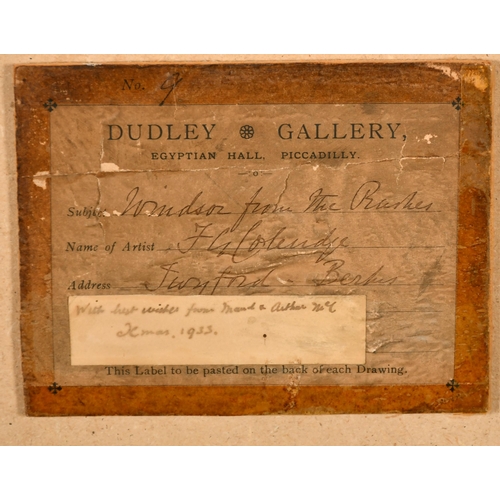 No. 9
DUDLEY GALLERY,
EGYPTIAN HALL, PICCADILLY.
Subject Windsor from the Rushes
Name of Artist F G Coleridge
Address Twyford Berks
With best wishes from Maud & Arthur McC
Xmas, 1933.
This Label to be pasted on the back of each Drawing.